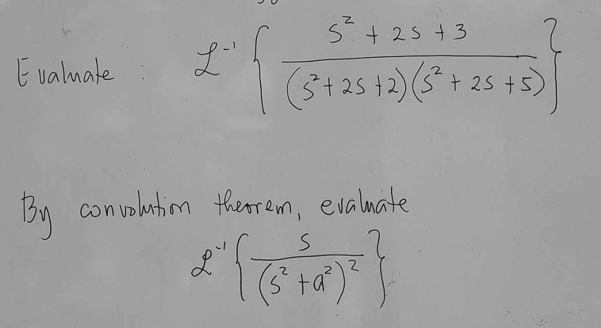 Evaluate : ℒ⁻¹ { (s² + 2s + 3) / ((s² + 2s + 2)(s² + 2s + 5)) }
By convolution theorem, evaluate
ℒ⁻¹ { s / (s² + a²)² }